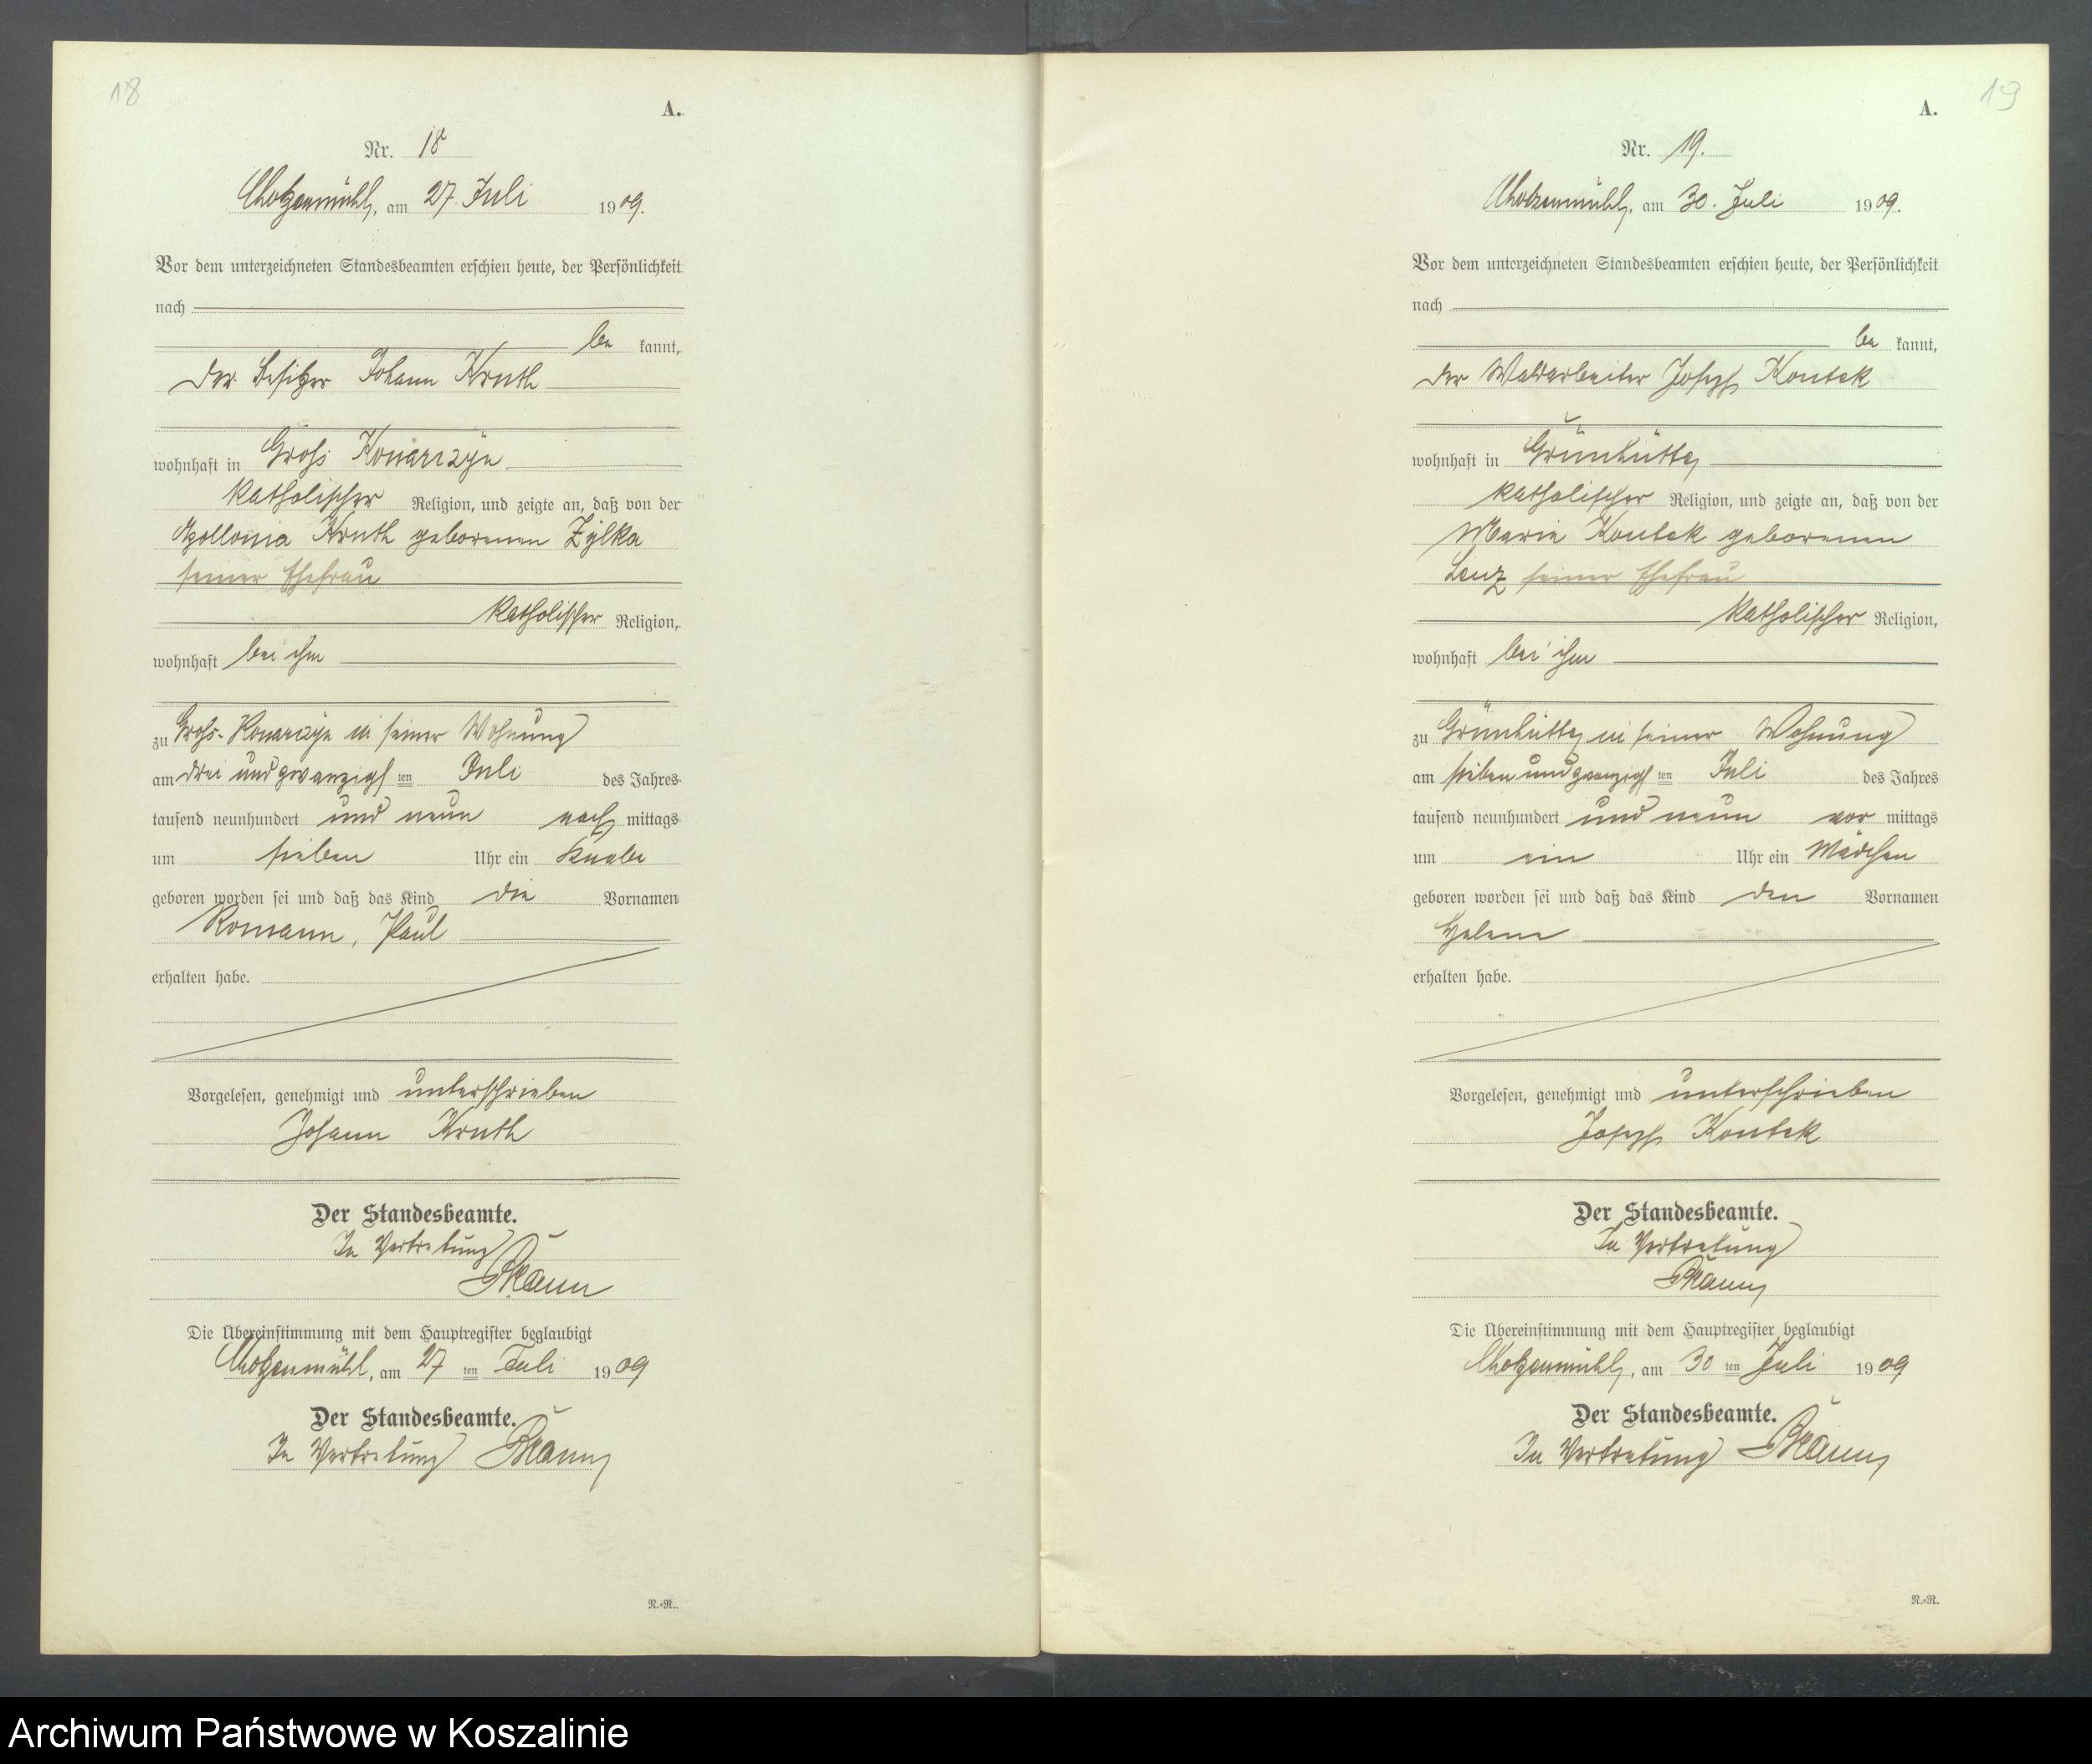 18
A.
Nr. 18
Chotzenmühl, am 27. Juli 1909.
Vor dem unterzeichneten Standesbeamten erschien heute, der Persönlichkeit
nach
be kannt,
der Besitzer Johann Kruth
wohnhaft in Groß Konarczyn
katholischer Religion, und zeigte an, daß von der
Apollonia Kruth geborenen Zylka
seiner Ehefrau
katholischer Religion,
wohnhaft bei ihm
zu Groß-Konarczyn in seiner Wohnung
am drei und zwanzigsten Juli des Jahres
tausend neunhundert und neun nach mittags
um sieben Uhr ein Knabe
geboren worden sei und daß das Kind die Vornamen
Romann, Paul
erhalten habe.
Vorgelesen, genehmigt und unterschrieben
Johann Kruth
Der Standesbeamte.
In Vertretung
Die Übereinstimmung mit dem Hauptregister beglaubigt
Chotzenmühl, am 27 ten Juli 1909
Der Standesbeamte.
In Vertretung
R.-R.
19
A.
Nr. 19.
Chotzenmühl, am 30. Juli 1909.
Vor dem unterzeichneten Standesbeamten erschien heute, der Persönlichkeit
nach
be kannt,
der Waldarbeiter Joseph Kontek
wohnhaft in Grünhütte
katholischer Religion, und zeigte an, daß von der
Marie Kontek geborenen
Lenz seiner Ehefrau
katholischer Religion,
wohnhaft bei ihm
zu Grünhütte in seiner Wohnung
am sieben und zwanzigsten Juli des Jahres
tausend neunhundert und neun vor mittags
um ein Uhr ein Mädchen
geboren worden sei und daß das Kind den Vornamen
Helene
erhalten habe.
Vorgelesen, genehmigt und unterschrieben
Joseph Kontek
Der Standesbeamte.
In Vertretung
Die Übereinstimmung mit dem Hauptregister beglaubigt
Chotzenmühl, am 30 ten Juli 1909
Der Standesbeamte.
In Vertretung
R.-R.
Archiwum Państwowe w Koszalinie